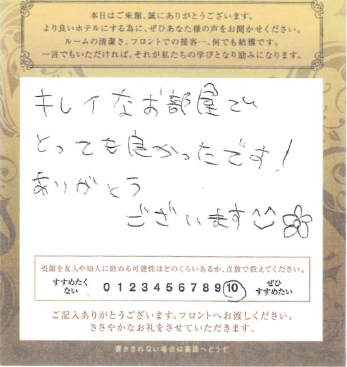 本日はご来館、誠にありがとうございます。
より良いホテルにする為に、ぜひあなた様の声をお聞かせください。
ルームの清潔さ、フロントでの接客…、何でも結構です。
一言でもいただければ、それが私たちの学びとなり励みになります。
キレイなお部屋で
とっても良かったです!
ありがとう
ございます
当館を友人や知人に勧める可能性はどのくらいあるか、点数で教えてください。
すすめたくない 0 1 2 3 4 5 6 7 8 9 10 ぜひすすめたい
ご記入ありがとうございます。フロントへお渡しください。
ささやかなお礼をさせていただきます。
書ききれない場合は裏面へどうぞ